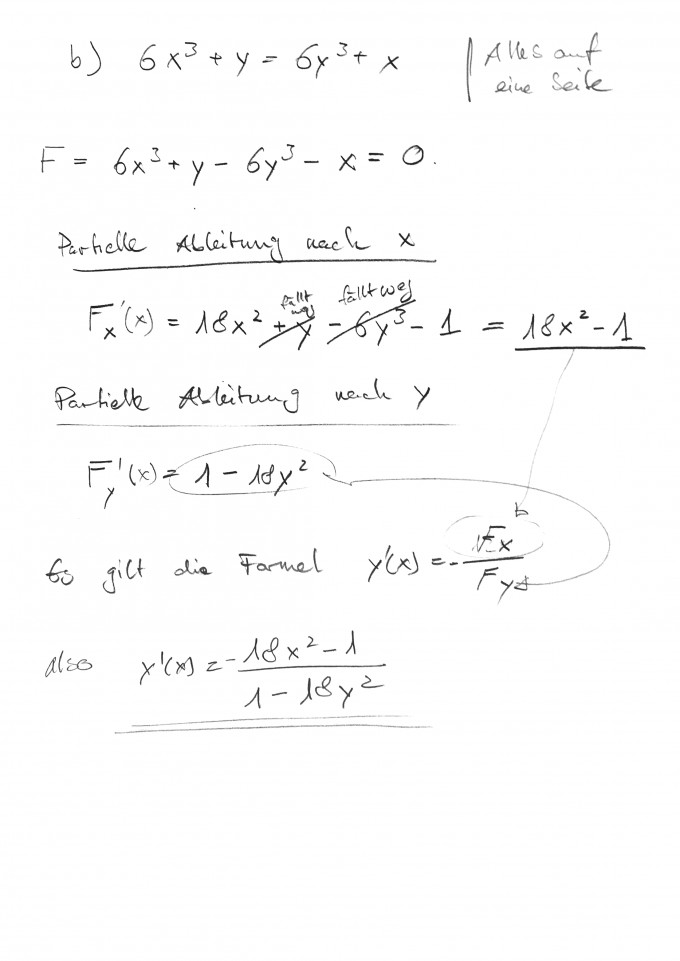 b) 6x³ + y = 6y³ + x
Alles auf
eine Seite
F = 6x³ + y - 6y³ - x = 0.
Partielle Ableitung nach x
fällt weg fällt weg
Fx'(x) = 18x² + y - 6y³ - 1 = 18x² - 1
Partielle Ableitung nach y
Fy'(x) = 1 - 18y²
Es gilt die Formel y'(x) = - Fx / Fy
also y'(x) = - 18x² - 1 / 1 - 18y²